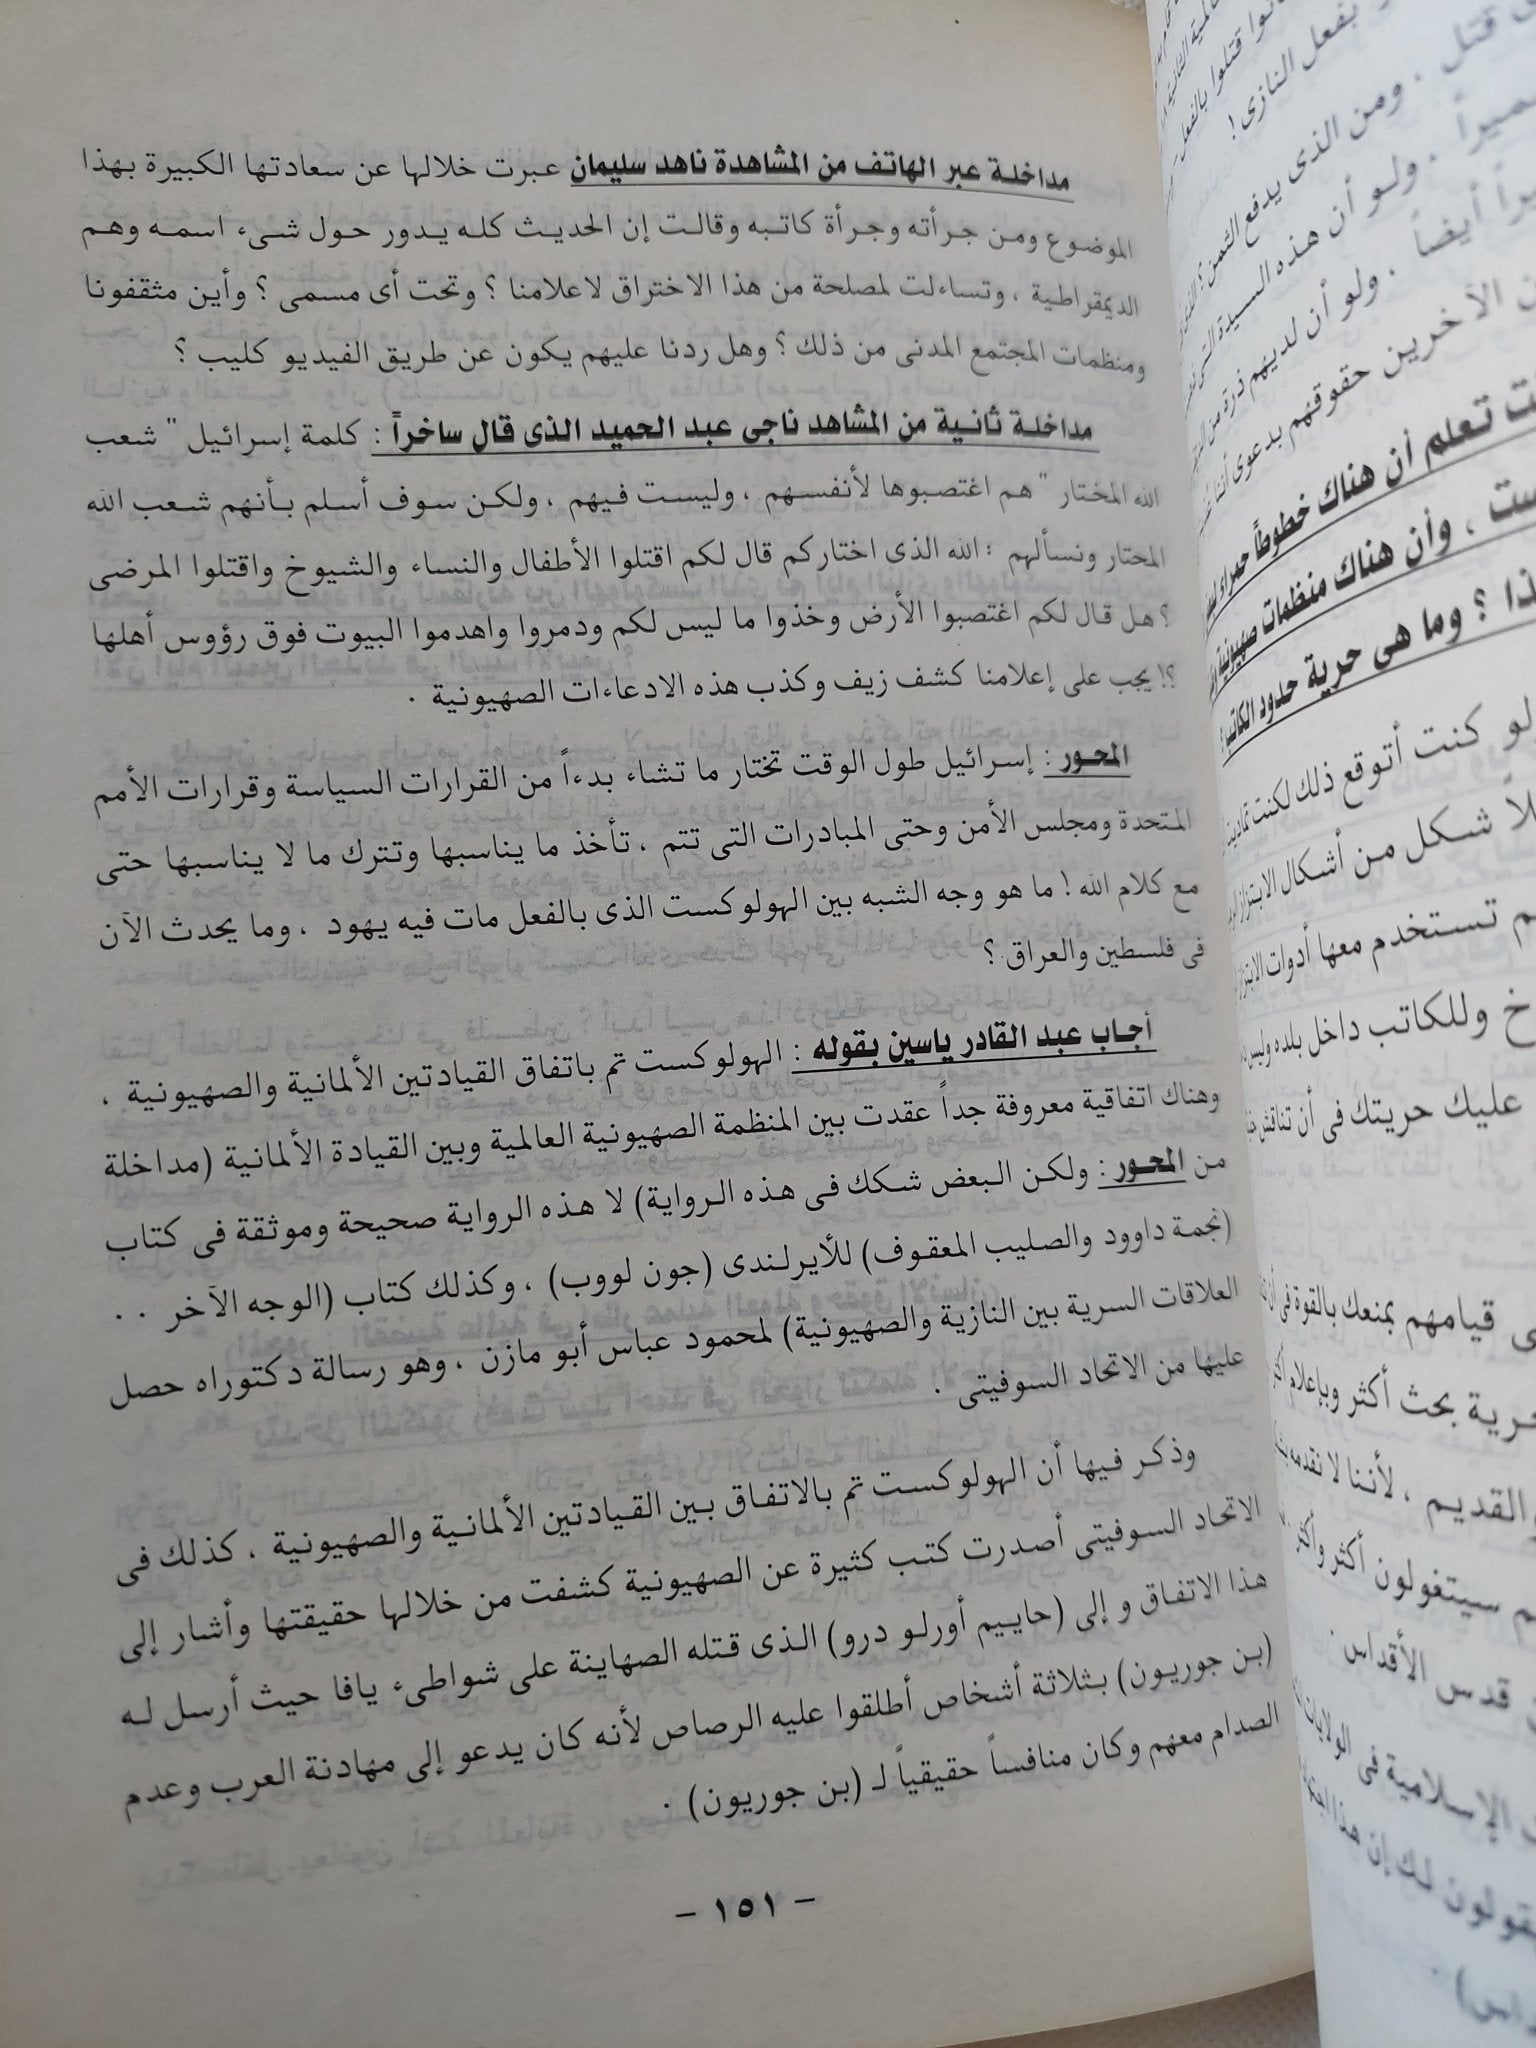 مداخلة عبر الهاتف من المشاهدة ناهد سليمان عبرت خلالها عن سعادتها الكبيرة بهذا
الموضوع ومن جرأته وجرأة كاتبه وقالت إن الحديث كله يدور حول شىء اسمه وهم
الديمقراطية ، وتساءلت لمصلحة من هذا الاختراق لاعلامنا ؟ وتحت أى مسمى ؟ وأين مثقفونا
ومنظمات المجتمع المدنى من ذلك ؟ وهل ردنا عليهم يكون عن طريق الفيديو كليب ؟
مداخلة ثانية من المشاهد ناجى عبد الحميد الذى قال ساخراً : كلمة إسرائيل " شعب
الله المختار " هم اغتصبوها لأنفسهم ، وليست فيهم ، ولكن سوف أسلم بأنهم شعب الله
المحتار ونسألهم : الله الذى اختاركم قال لكم اقتلوا الأطفال والنساء والشيوخ واقتلوا المرضى
؟ هل قال لكم اغتصبوا الأرض وخذوا ما ليس لكم ودمروا واهدموا البيوت فوق رؤوس أهلها
؟! يجب على إعلامنا كشف زيف وكذب هذه الادعاءات الصهيونية .
المحور : إسرائيل طول الوقت تختار ما تشاء بدءاً من القرارات السياسة وقرارات الأمم
المتحدة ومجلس الأمن وحتى المبادرات التى تتم ، تأخذ ما يناسبها وتترك ما لا يناسبها حتى
مع كلام الله ! ما هو وجه الشبه بين الهولوكست الذى بالفعل مات فيه يهود ، وما يحدث الآن
فى فلسطين والعراق ؟
أجاب عبد القادر ياسين بقوله : الهولوكست تم باتفاق القيادتين الألمانية والصهيونية ،
وهناك اتفاقية معروفة جداً عقدت بين المنظمة الصهيونية العالمية وبين القيادة الألمانية (مداخلة
من المحور : ولكن البعض شكك فى هذه الرواية) لا هذه الرواية صحيحة وموثقة فى كتاب
(نجمة داوود والصليب المعقوف) للأيرلندى (جون لووب) ، وكذلك كتاب (الوجه الآخر . .
العلاقات السرية بين النازية والصهيونية) لمحمود عباس أبو مازن ، وهو رسالة دكتوراه حصل
عليها من الاتحاد السوفيتى .
وذكر فيها أن الهولوكست تم بالاتفاق بين القيادتين الألمانية والصهيونية ، كذلك فى
الاتحاد السوفيتى أصدرت كتب كثيرة عن الصهيونية كشفت من خلالها حقيقتها وأشار إلى
هذا الاتفاق و إلى (حاييم أورلو درو) الذى قتله الصهاينة على شواطىء يافا حيث أرسل له
(بن جوريون) بثلاثة أشخاص أطلقوا عليه الرصاص لأنه كان يدعو إلى مهادنة العرب وعدم
الصدام معهم وكان منافساً حقيقياً لـ (بن جوريون) .
- ١٥١ -
بفعل النازى !
قتل . ومن الذى يدفع الثمن ؟
. ولو أن هذه السيدة التى
أيضاً . ولو أن لديهم ذرة من
الآخرين حقوقهم بدعوى أننا
تعلم أن هناك خطوطاً حمراء
، وأن هناك منظمات صهيونية
؟ وما هى حرية حدود الكاتب ؟
لو كنت أتوقع ذلك لكنت
شكل من أشكال الابتزاز
تستخدم معها أدوات الابتزاز
وللكاتب داخل بلده وليس
عليك حريتك فى أن تناقش
قيامهم بمنعك بالقوة فى أن
بحث أكثر وبإعلام
القديم ، لأننا لا نقدمه
سيتغولون أكثر وأكثر
قدس الأقداس .
الإسلامية فى الولايات
لك إن هذا